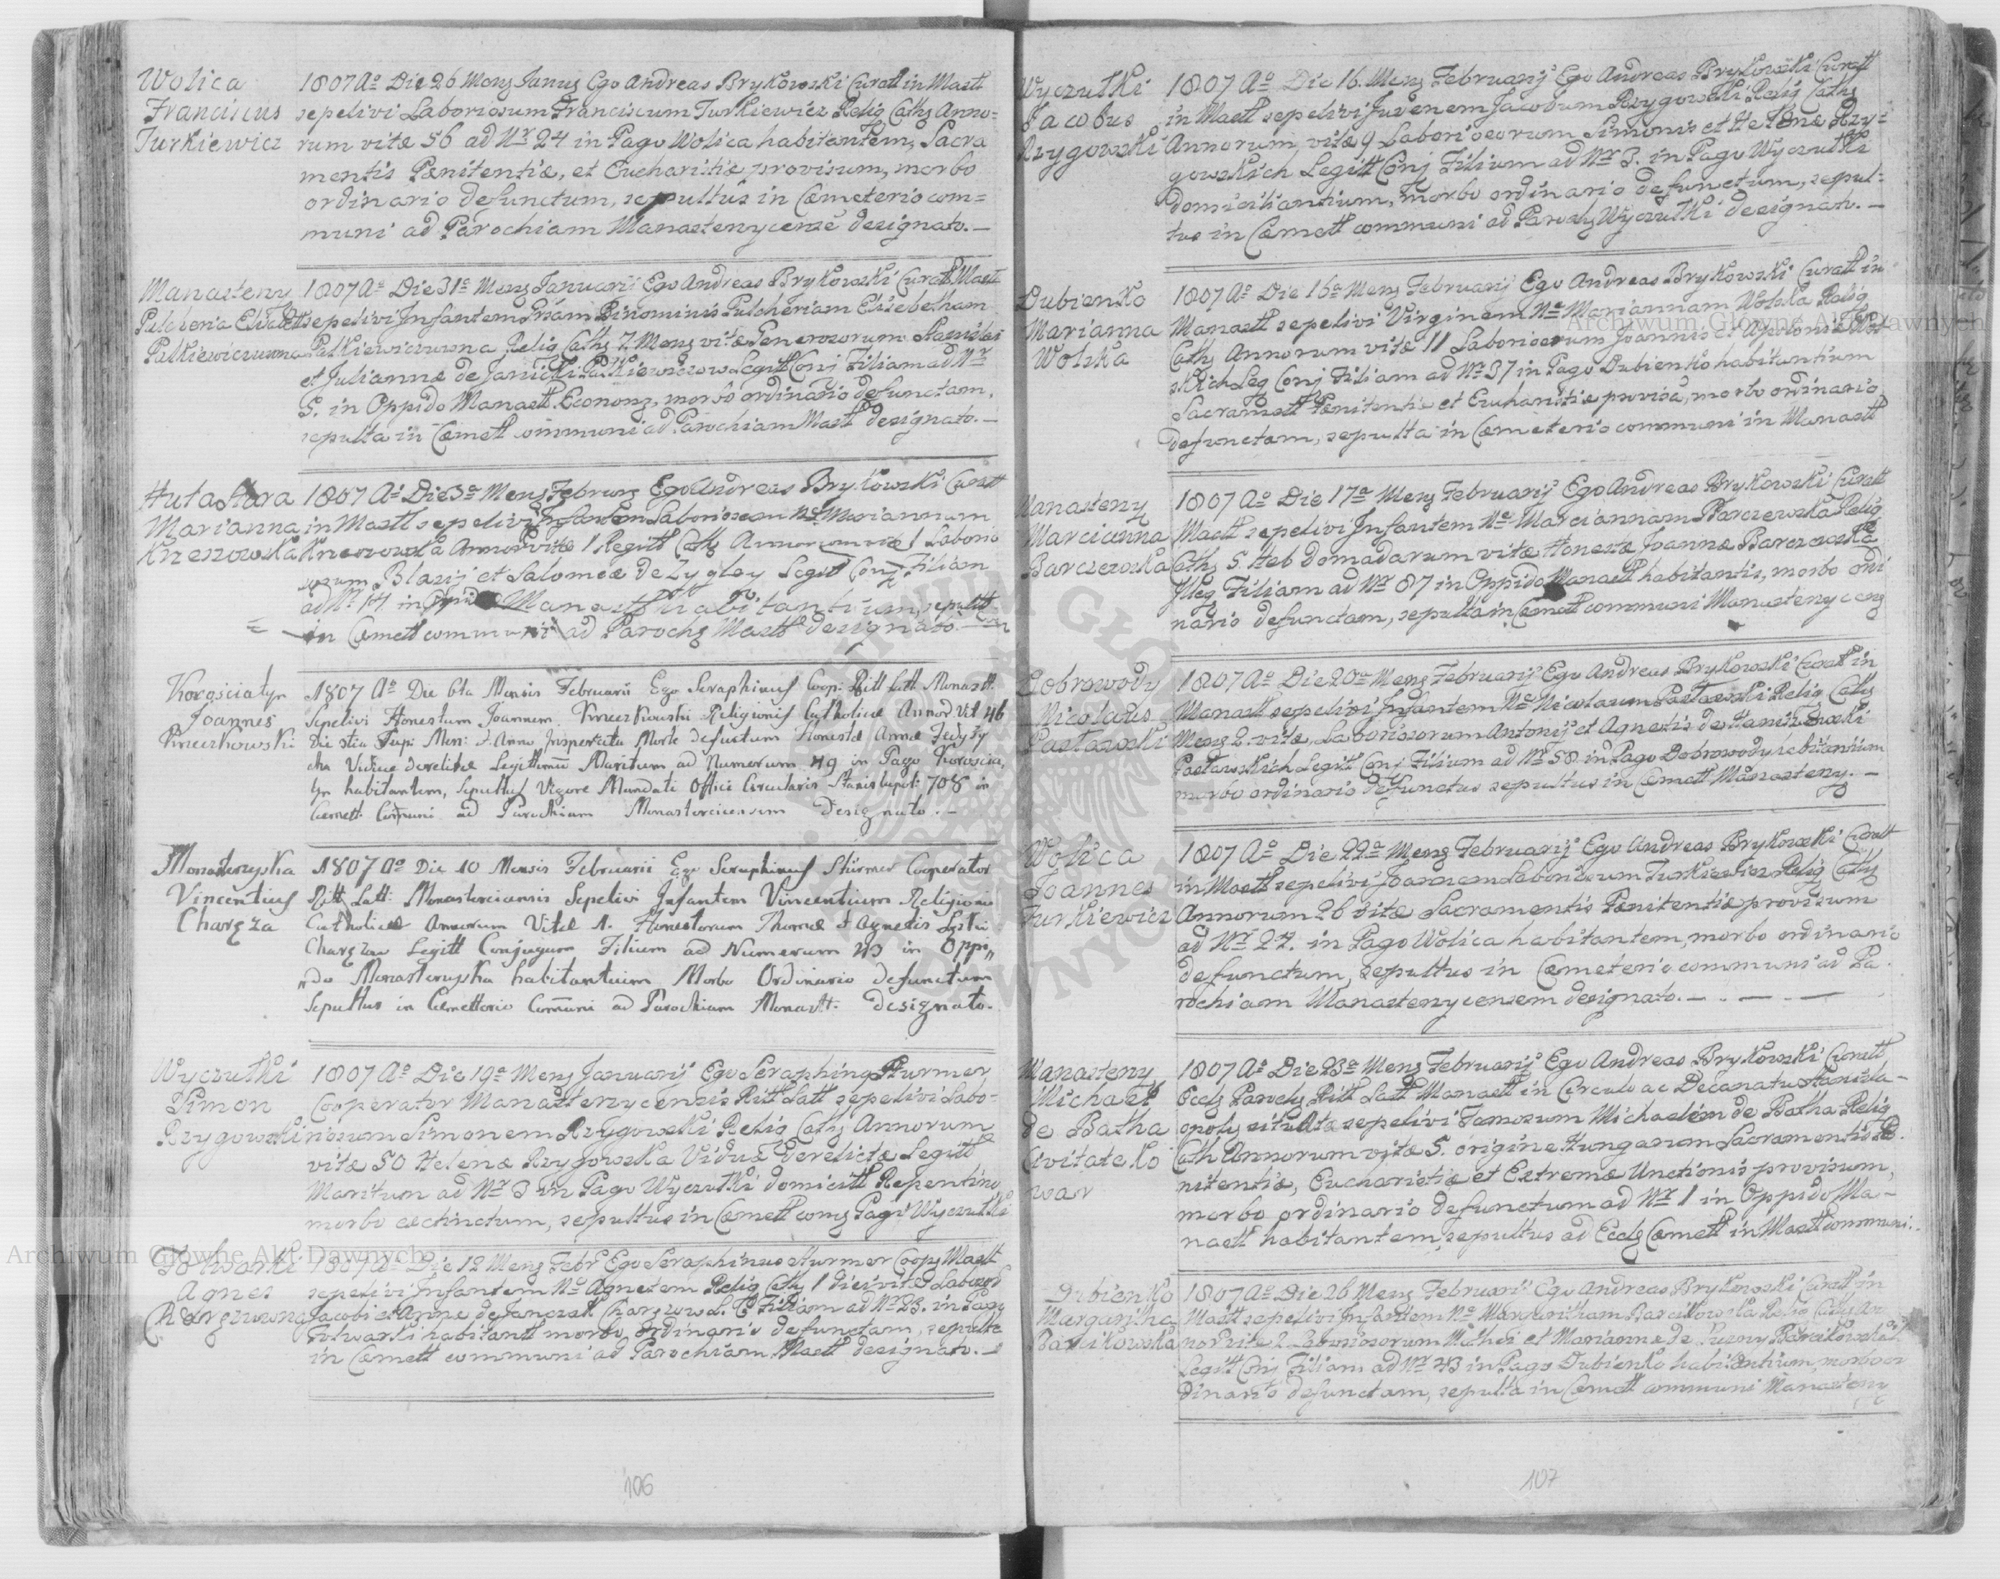 Wolica
Franciscus
Turkiewicz
1807 Ao Die 26 Mens Januy Ego Andreas Brykowski Curatt in Mastt
sepelivi Laboriosum Franciscum Turkiewicz Relig Cathy Anno=
rum vitæ 56 ad Nr 24 in Pago Wolica habitantem, Sacra
mentis Pœnitentiæ, et Eucharistiæ provisum, morbo
ordinario defunctum, sepultus in Cæmeterio com=
muni ad Parochiam Manastenycensē designato.—
Manasteny
Pulcheria Elisabett
Palkiewiczuwna
1807 Ao Die 31a Mens Januarii Ego Andreas Brykowski Curatt Mastt
sepelivi Infantem Binominis Pulcheriam Elisabetham
Palkiewiczuwna Relig Cathy 7 Mens vitæ Generosorum Stanislai
et Juliannæ de Janicki Palkiewiczow Legitt Conj Filiam ad Nr
5. in Oppido Manastt Econom, morbo ordinario defunctam,
sepulta in Cæmett communi ad Parochiam Mastt designato.—
Huta Stara
Marianna
Knezowska
1807 Ao Die 3a Mens Februy Ego Andreas Brykowski Curatt
in Mastt sepelivi Infantem Mariannam
Annor vitæ 1 Laborio
sorum Blasij et Salomeæ de Zygloy Legitt Conj Filiam
ad Nr 14 in Manastt habitantium, sepultt
in Cæmett communi ad Parochy Mastt designato.—
Korościatyn
Joannes
Kruczkowski
1807 Ao Die 6ta Mensis Februarii Ego Seraphinus Coop: Ritt Latt Monastt.
Sepelivi Honestum Joannem Kruczkowski Religionis Catholicæ Annor Vit 46
Die 5tia Supi Men: et Anno Insperata Morte defuctum Honestæ Annæ
Viduæ derelictæ Legitimū Maritum ad Numerum 49 in Pago Korościa,
tyn habitantem, Sepultus Vigore Mandati Officii Circularis 708 in
Cemett: Com̄uni ad Parochiam Monastercicensem Designato.—
Monasterzyska
Vincentius
Charęza
1807 Ao Die 10 Mensis Februarii Ego Seraphinus Stürmer Cooperator
Ritt Latt: Monasterciensis Sepelivi Infantem Vincentium Religionis
Catholicæ Annorum Vitæ 1. Honestorum Thomæ et Agnetis
Legitt Conjugum Filium ad Numerum 43 in Oppi„
„do Monasterzyska habitantium Morbo Ordinario defunctum
Sepultus in Cemetterio Com̄uni ad Parochiam Monastt: Designato.
Wyczułki
Simon
Rzygowski
1807 Ao Die 19a Mens Januarij Ego Seraphing Sturmer
Cooperator Manasterzycensis Ritt Latt sepelivi Labo-
riosum Simonem Rzygowski Relig Cathy Annorum
vitæ 50 Helenæ Rzygowska Viduæ derelictæ Legitt
Maritum ad Nr 3 in Pago Wyczułki domicitt Repentino
morbo exctinctum, sepultus in Cæmett comy Pagi Wyczułki
Folwarki
Agnes
1807 Ao Die 12 Mens Febr Ego Seraphinus Sturmer Coopy Mastt
sepelivi Infantem Na Agnetem Relig Cathy 1 Diei vitæ Laborios
Jacobi et Annæ de L. C. Filiam ad Nr 23. in Pago
Folwarki habitantt morbo ordinario defunctam, sepulta
in Cæmett communi ad Parochiam Mastt designato.—
106
Wyczułki
Jacobus
Rzygowski
1807 Ao Die 16. Mens Februarij Ego Andreas Brykowski Curatt
in Mastt sepelivi Juvenem Jacobum Rzygowski Relig Cathy
Annorum vitæ 9 Laboriosorum Simonis et Helenæ Rzy=
gowskich Legitt Conj Filium ad Nr 3. in Pago Wyczułki
domiciliantium, morbo ordinario defunctum, sepul=
tus in Cæmett communi ad Parochy Wyczułki designato.—
Dubienko
Marianna
Wolska
1807 Ao Die 16a Mens Februarij Ego Andreas Brykowski Curatt in
Manastt sepelivi Virginem Na Mariannam Wolska Relig
Cathy Annorum vitæ 11 Laboriosorum Joannis et Apolonia Wol-
skich Leg Conj Filiam ad Nr 37 in Pago Dubienko habitantium
Sacramett Pœnitentiæ et Eucharistiæ provisa, morbo ordinario
defunctam, sepulta in Cæmeterio communi in Manastt
Manasteny
Marcianna
Barczewska
1807 Ao Die 17a Mens Februarij Ego Andreas Brykowski Curatt
Mastt sepelivi Infantem Na Marciannam Barczewska Relig
Cathy 5 Hebdomadarum vitæ Honestæ Joannæ Barczewska
Illeg Filiam ad Nr 87 in Oppido Manastt habitantis, morbo ordi
nario defunctam, sepulta in Cæmett communi Manastenyceng
Dobrowody
Nicolaus
Pastawski
1807 Ao Die 20a Mens Februarij Ego Andreas Brykowski Curatt in
Manastt sepelivi Infantem Na Nicolaum Pastawski Relig Cathy
Mens 2. vitæ, Laboriosorum Antonij et Agnetis de
Pastawskich Legitt Conj Filium ad Nr 58 in Pago Dobrowody habitantium
morbo ordinario defunctus sepultus in Cæmett Manasteny.—
Wolica
Joannes
Turkiewicz
1807 Ao Die 22a Mens Februarij Ego Andreas Brykowski Curatt
in Mastt sepelivi Joannem Laboriosum Turkiewicz Relig Cathy
Annorum 26 vitæ Sacramentis Pœnitentiæ provisum
ad Nr 24. in Pago Wolica habitantem, morbo ordinario
defunctum, sepultus in Cæmeterio communi ad Pa-
rochiam Manastenycensem designato.—.—.—
Manasteny
Michael
de Batha
Civitate Ko
war
1807 Ao Die 23a Mens Februarij Ego Andreas Brykowski Curatt
Eccly Parochy Ritt Latt Manastt in Circulo ac Decanatu Stanisla-
opoly situata sepelivi Famosum Michaelem de Batha Relig
Cath Annorum vitæ 5. origine Hungarum Sacramentis Pœ
nitentiæ, Eucharistiæ et Extremæ Unctionis provisum,
morbo ordinario defunctum ad Nr 1 in Oppido Ma-
nastt habitantem, sepultus ad Eccly Cæmett in Mastt communi.
Dubienko
Margaritha
Barcikowska
1807 Ao Die 26 Mens Februarij Ego Andreas Brykowski Curatt in
Mastt sepelivi Infantem Na Margaritham Barcikowska Relig Cathy An
nor vitæ 2 Laboriosorum Mathei et Mariannæ de
Legitt Conj Filiam ad Nr 43 in Pago Dubienko habitantium, morbo or
dinario defunctam, sepulta in Cæmett communi Manasteny
107
Archiwum Główne Akt Dawnych
Archiwum Główne Akt Dawnych